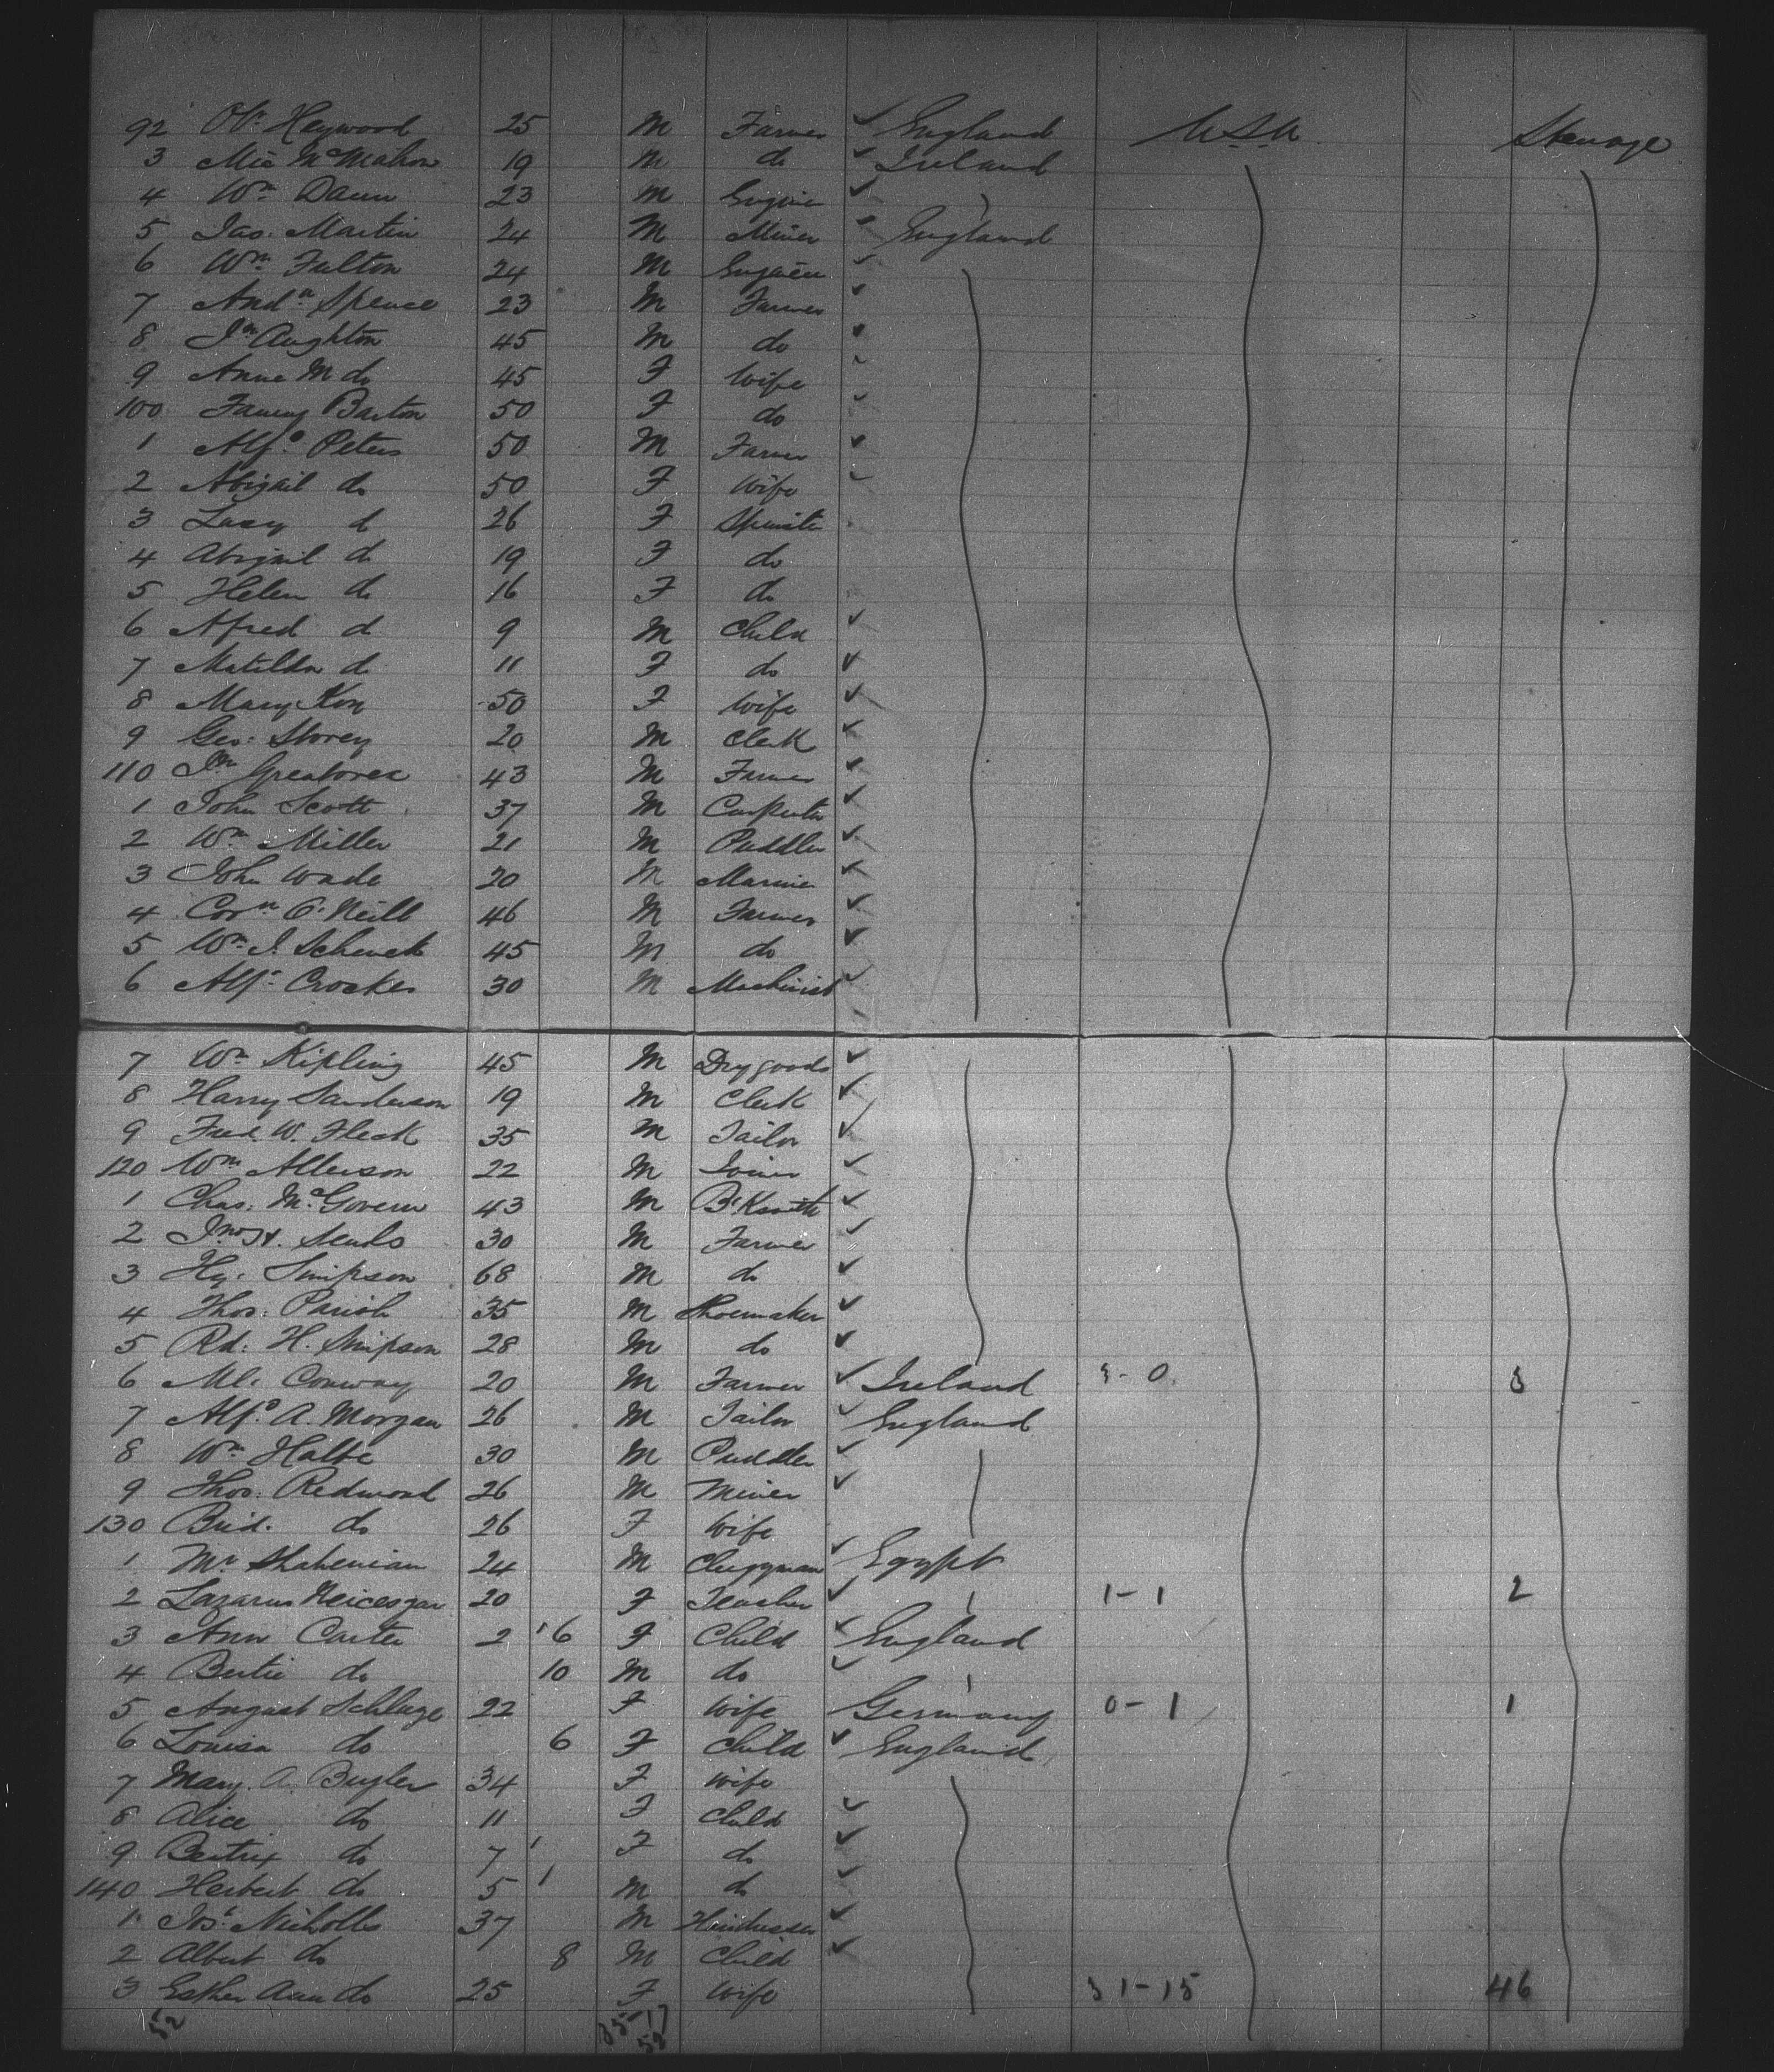 92 Heywood 25 M Farmer ✓ England U.S.A. Steerage
3 Mic McMahon 19 M do ✓ Ireland
4 Wm Daun 23 M ✓
5 Jas. Martin 24 M Miner England
6 Wm Fulton 24 M Engineer ✓
7 Andw Spence 23 M Farmer
8 Jn Aughton 45 M do
9 Anne M do 45 F Wife
100 Fanny Barton 50 F do
1 Alfd Peters 50 M Farmer
2 Abigail do 50 F Wife
3 Lucy d 26 F Spinster
4 Abigail d 19 F do
5 Helen d 16 F do
6 Afred d 9 M Child ✓
7 Matilda d 11 F do ✓
8 Mary 50 F Wife ✓
9 Geo: Storey 20 M Clerk ✓
110 Jn Greatorex 43 M Farmer ✓
1 John Scott 37 M Carpenter ✓
2 Wm Miller 21 M Puddler ✓
3 John Wade 20 M Mariner ✓
4 Corn O'Neill 46 M Farmer ✓
5 Wm J. Schenck 45 M do ✓
6 Alfd Crocker 30 M Machinist ✓
7 Wm Kipling 45 M Drygoods ✓
8 Harry Sanderson 19 M Clerk ✓
9 Fred. W. Fleck 35 M Tailor ✓
120 Wm Allerson 22 M Joiner ✓
1 Chas. McGovern 43 M Bk.Smith ✓
2 Jno H. 30 M Farmer ✓
3 Hy. Simpson 68 M do ✓
4 Thos: Parish 35 M Shoemaker ✓
5 Rd: H. Simpson 28 M do ✓
6 Ml. Conway 20 M Farmer ✓ Ireland - 0
7 Alfd. A. Morgan 26 M Tailor ✓ England
8 Wm 30 M Puddler ✓
9 Thos. Redmond 26 M Miner ✓
130 Brid. do 26 F Wife
1 Mr Shahenian 24 M Clergyman ✓ Egypt
2 Lazarus 20 F Teacher ✓ 1-1 2
3 Ann Carter 2 6 F Child ✓ England
4 Bertie do 10 M do ✓
5 August Schluge 22 F Wife Germany 0-1 1
6 Louisa do 6 F Child ✓ England
7 Mary. A. Bugler 34 F Wife
8 Alice do 11 F Child ✓
9 Beatrix do 7 F do ✓
140 Herbert do 5 M do ✓
1 Jos. Nicholls 37 M ✓
2 Albert do 8 M Child ✓
3 Esther Ann do 25 F Wife 31-15 46
52 35-17
52